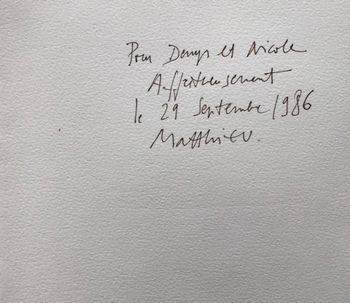 Pour Denys et Nicole
Affectueusement
le 29 Septembre 1986
Matthieu.